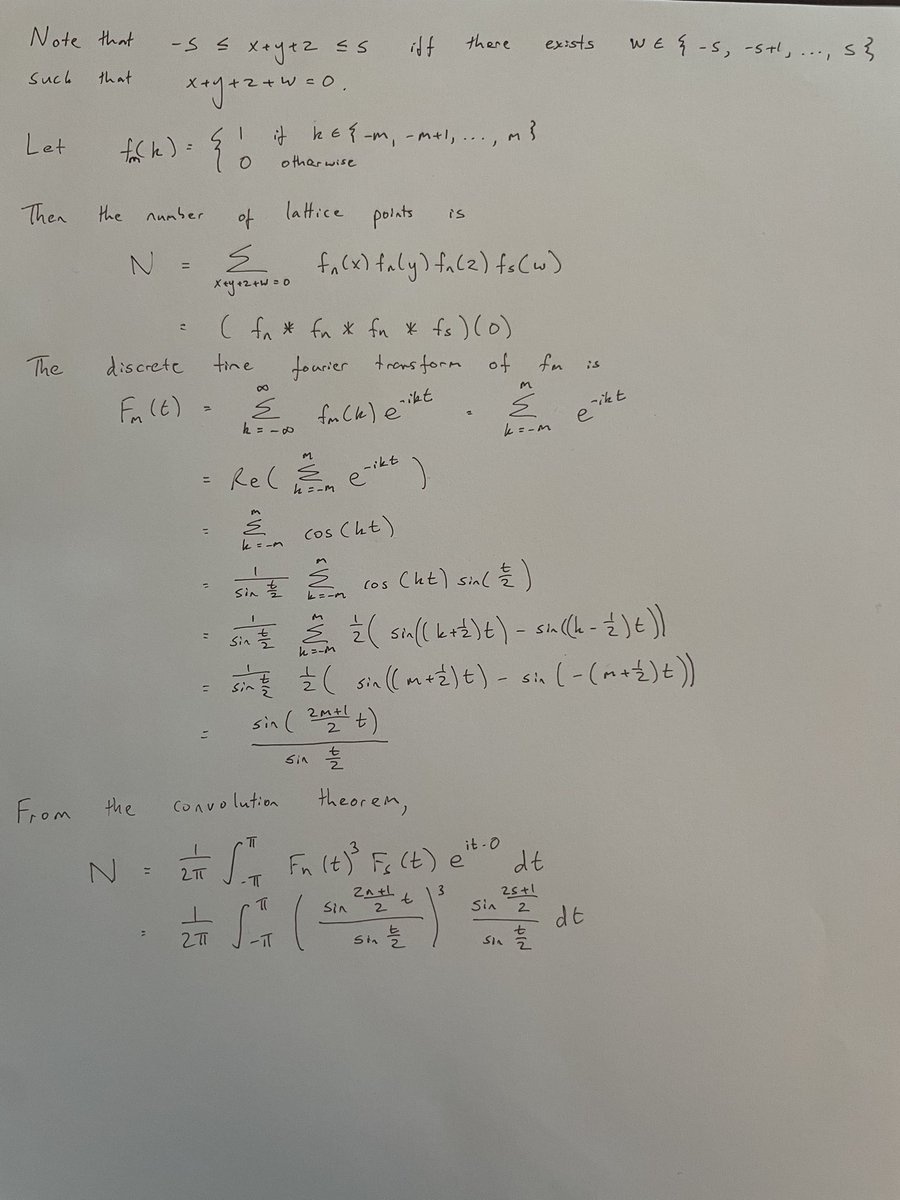 Note that -s ≤ x+y+z ≤ s iff there exists w ∈ { -s, -s+1, ..., s }
such that x+y+z+w = 0.
Let f_m(k) = { 1 if k ∈ { -m, -m+1, ..., m }
0 otherwise
Then the number of lattice points is
N = Σ_{x+y+z+w=0} f_n(x) f_n(y) f_n(z) f_s(w)
= ( f_n * f_n * f_n * f_s )(0)
The discrete time fourier transform of f_m is
F_m(t) = Σ_{k=-∞}^{∞} f_m(k) e^{-ikt} = Σ_{k=-m}^{m} e^{-ikt}
= Re( Σ_{k=-m}^{m} e^{-ikt} )
= Σ_{k=-m}^{m} cos(kt)
= 1/(sin t/2) Σ_{k=-m}^{m} cos(kt) sin(t/2)
= 1/(sin t/2) Σ_{k=-m}^{m} 1/2 ( sin((k+1/2)t) - sin((k-1/2)t))
= 1/(sin t/2) 1/2 ( sin((m+1/2)t) - sin(-(m+1/2)t))
= sin( (2m+1)/2 t) / sin t/2
From the convolution theorem,
N = 1/2π ∫_{-π}^{π} F_n(t)^3 F_s(t) e^{it·0} dt
= 1/2π ∫_{-π}^{π} ( sin (2n+1)/2 t / sin t/2 )^3 sin (2s+1)/2 / sin t/2 dt